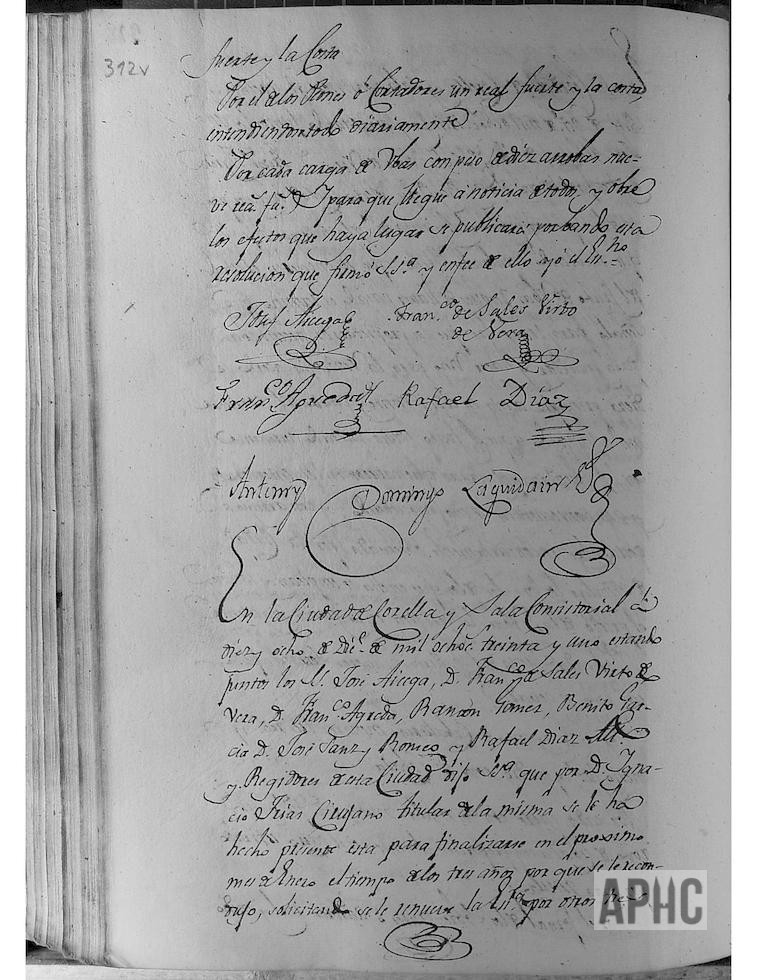 312v
fuerte y la Costa
Por el de los Peones ó Cortadores un real fuerte y la costa,
entendiendose todo diariamente
Por cada carga de Vbas con peso de diez arrobas nue-
ve rea.s fu.s Y para que llegue a noticia de todos y obre
los efectos que haya lugar se publicará por bando esta
resolucion que firmó S.S.ª y en fee de ello yo el Es.no
Josef Aicega Fran.co de Sales Virto
de Vera
Fran.co Agreda Rafael Díaz
Antemy Domingo Laquidain
En la Ciudad de Corella y Sala Consistorial á
diez y ocho de Dic.e de mil ochoc.s treinta y uno estando
juntos los S.s José Aicega, D. Fran.co de Sales Virto de
Vera, D. Fran.co Agreda, Ramon Gomez, Benito Gar-
cia D. José Sanz y Romeo y Rafael Diaz Alc.e
y Regidores de esta Ciudad dijo S.S.ª que por D. Igna-
cio Frias Cirujano titular de la misma se le ha
hecho presente esta para finalizarse en el proximo
mes de Enero el tiempo de los tres años por que se le recon-
dujo, solicitando se le renueve la por otros tres
APHC